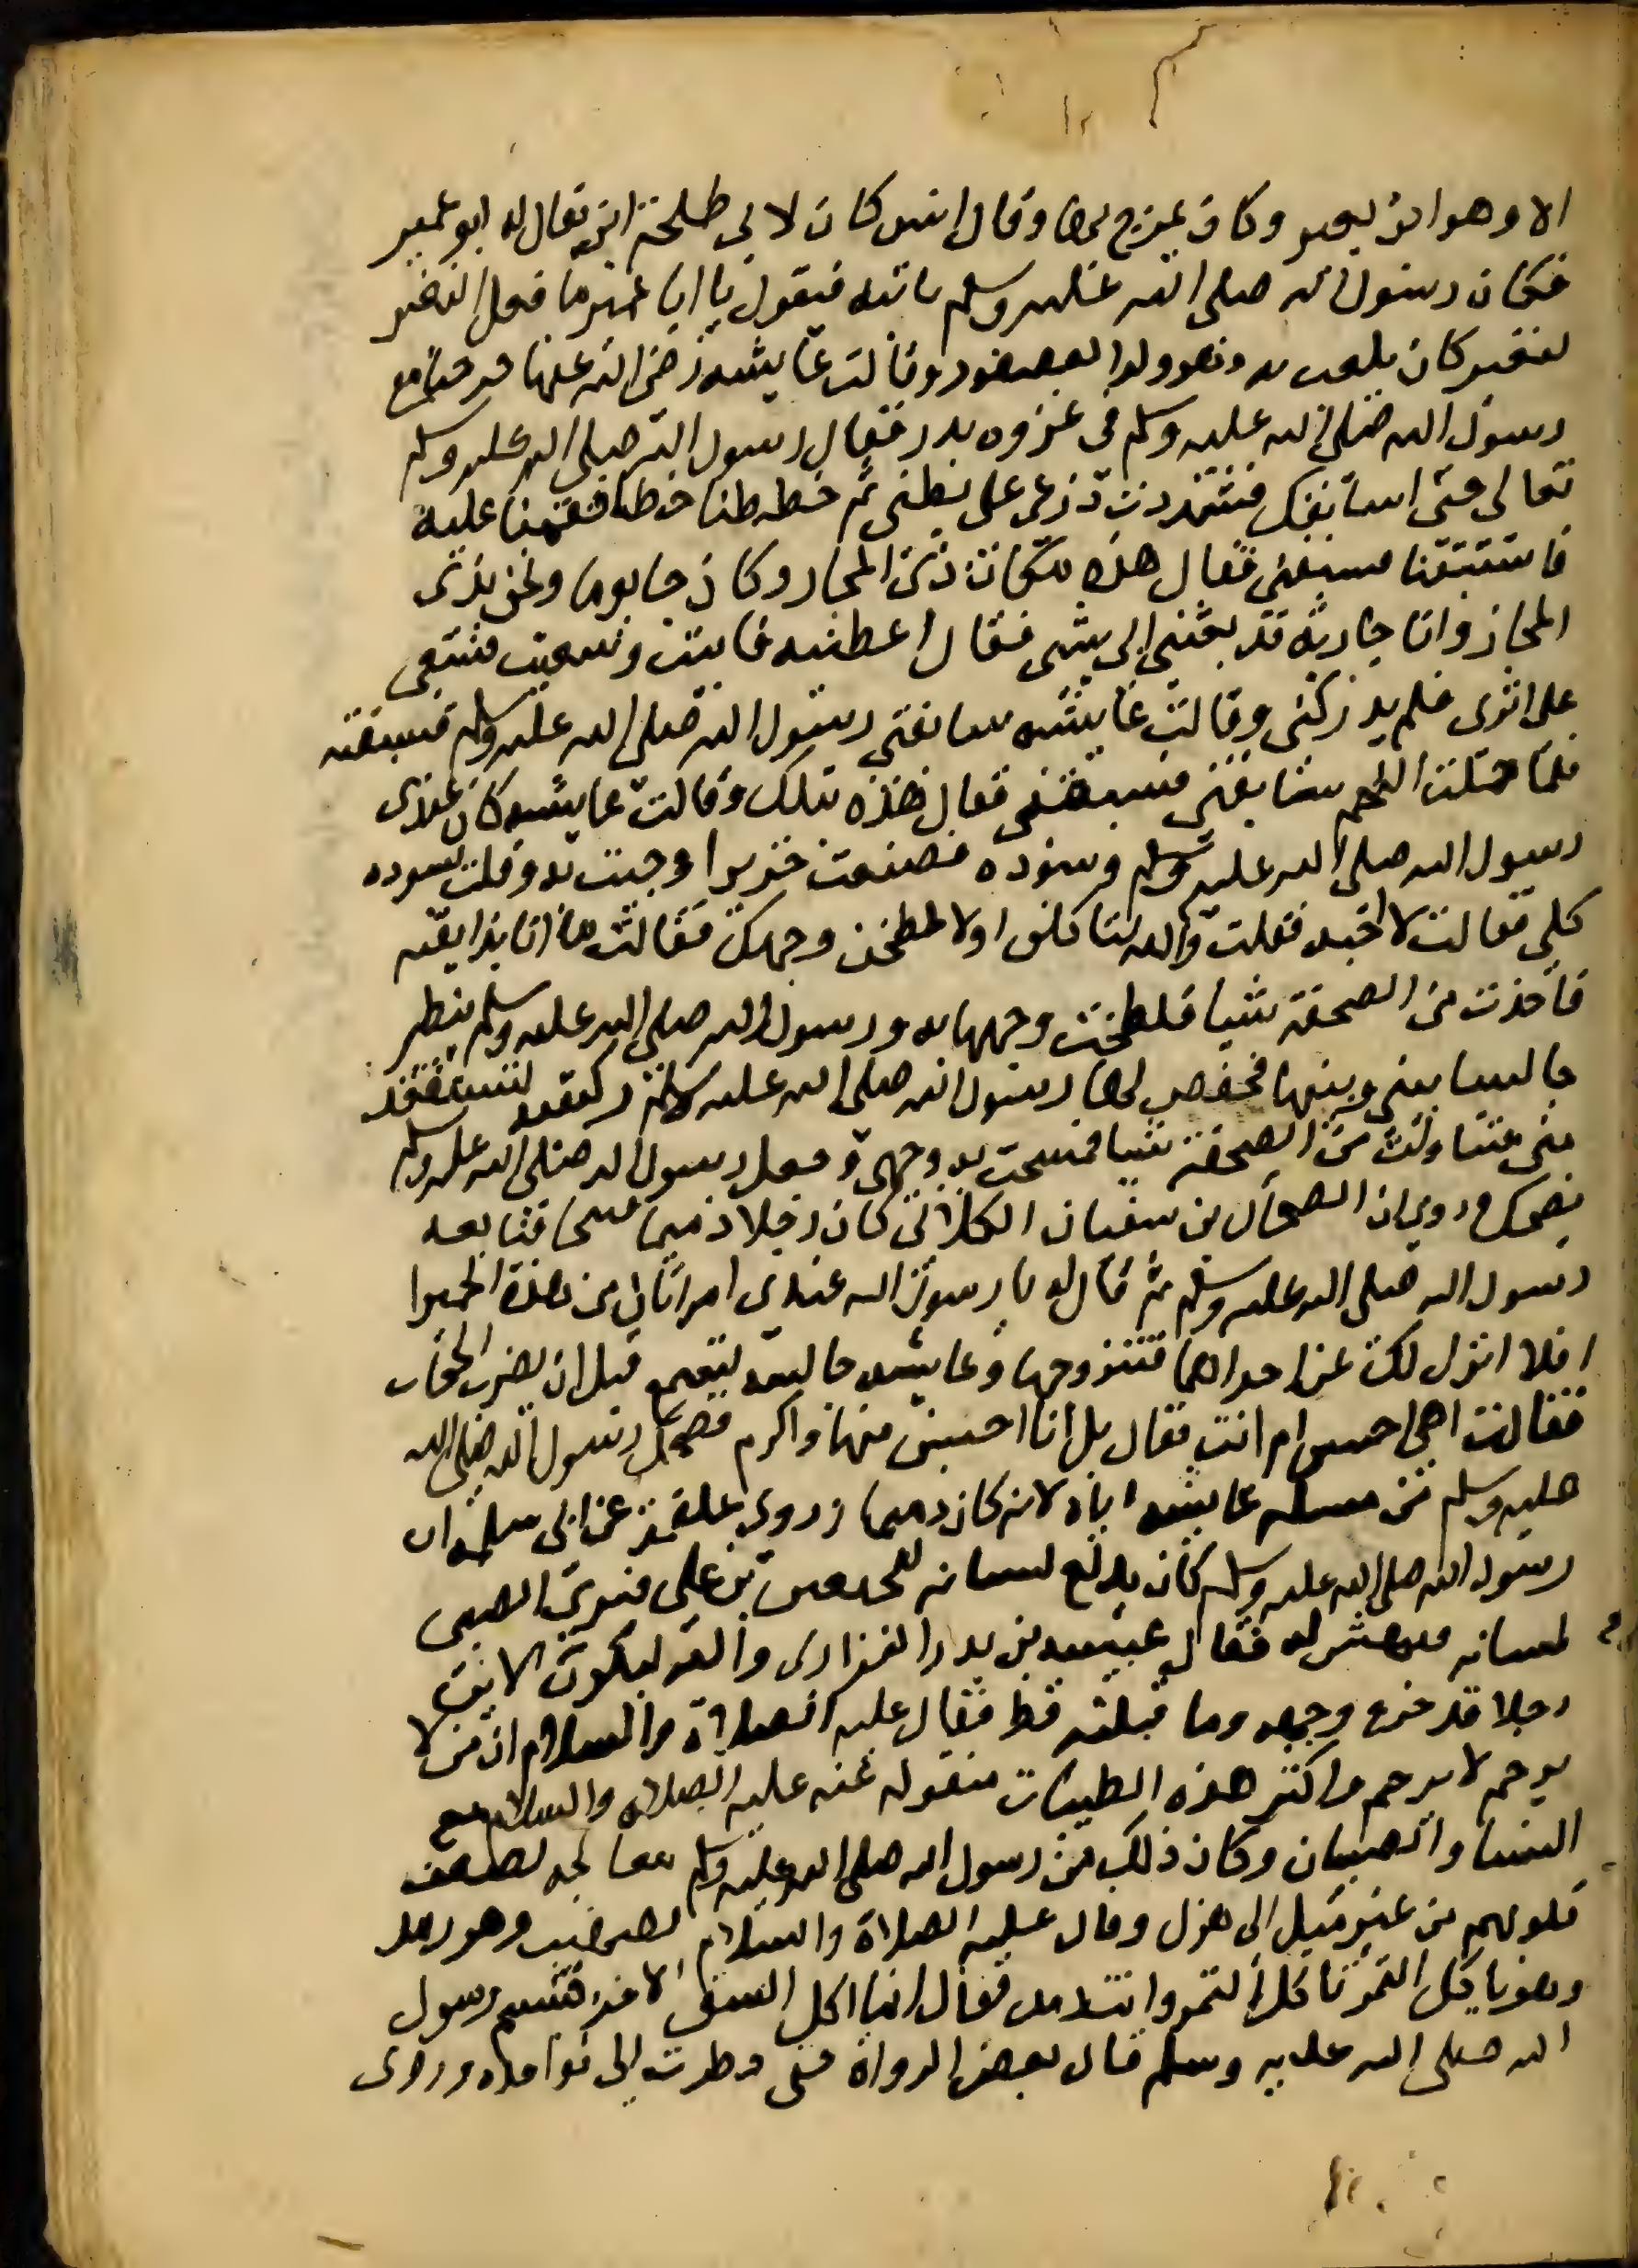 الا وهو ابن بعير وكان يمزح بهذا وقال انس كان لابى طلحة ابن يقال له ابو عمير
فكان رسول الله صلى الله عليه وسلم ياتيه فيقول يا ابا عمير ما فعل النغير
لنغير كان يلعب به وهو ولد العصفور وقالت عايشه رضى الله عنها خرجنا مع
رسول الله صلى الله عليه وسلم فى غزوه بدر فقال رسول الله صلى الله عليه وسلم
تعالى حتى اسابقك فشددت درعى على بطنى ثم خططنا خطا فقمنا عليه
فاستبقنا فسبقنى فقال هذه مكان ذى المجاز وكان جا يوما ونحن بذى
المجاز وانا جارية قد بعثنى ابى بشى فقال اعطنيه فابيت وسعيت فسعى
على اثرى فلم يدركنى وقالت عايشه سابقنى رسول الله صلى الله عليه وسلم فسبقته
فلما حملت اللحم سابقنى فسبقنى فقال هذه بتلك وقالت عايشه كان عندى
رسول الله صلى الله عليه وسلم وسوده فصنعت خزيرا وجيت به وقلت لسوده
كلى فقالت لا احبه فقلت والله لتاكلن او لالطخن وجهك فقالت ما انا بذايقته
فاخذت من الصحفة شيا فلطخت وجهها به ورسول الله صلى الله عليه وسلم ينظر
جالسا بينى وبينها فخفض لها رسول الله صلى الله عليه وسلم ركبته لتستقيد
منى فتناولت من الصحفة شيا فمسحت به وجهى وجعل رسول الله صلى الله عليه وسلم
يضحك وروى ان الضحاك بن سفيان الكلابى كان رجلا دميما قبيحا فتابعه
رسول الله صلى الله عليه وسلم ثم قال له يا رسول الله عندى امراتان من هذه الحميرا
افلا انزل لك عن احداهما فتتزوجها وعايشه جالسه تسمع قبل ان يضرب الحجاب
فقالت اهى احسن ام انت فقال بل انا احسن منها واكرم فضحك رسول الله صلى الله
عليه وسلم من مسلة عايشه اياه لانه كان دميما وروى علقمة عن ابى سلمه ان
رسول الله صلى الله عليه وسلم كان يدلع لسانه للحسن بن على فيرى الصبى
لسانه فيهش له فقال عيينه بن بدر الفزارى والله ليكون الابن
رجلا قد خرج وجهه وما قبلته قط فقال عليه الصلاة والسلام ان من لا
يرحم لا يرحم واكثر هذه الطيبات منقوله عنه عليه الصلاه والسلام مع
النسا والصبيان وكان ذلك من رسول الله صلى الله عليه وسلم معالجه لضعف
قلوبهم من غير ميل الى هزل وقال عليه الصلاة والسلام لصهيب وهو رمد
وهو ياكل التمر تاكل التمر وانت رمد فقال انما اكل بالشق الاخر فتبسم رسول
الله صلى الله عليه وسلم قال بعض الرواة حتى نظرت الى نواجذه وروى